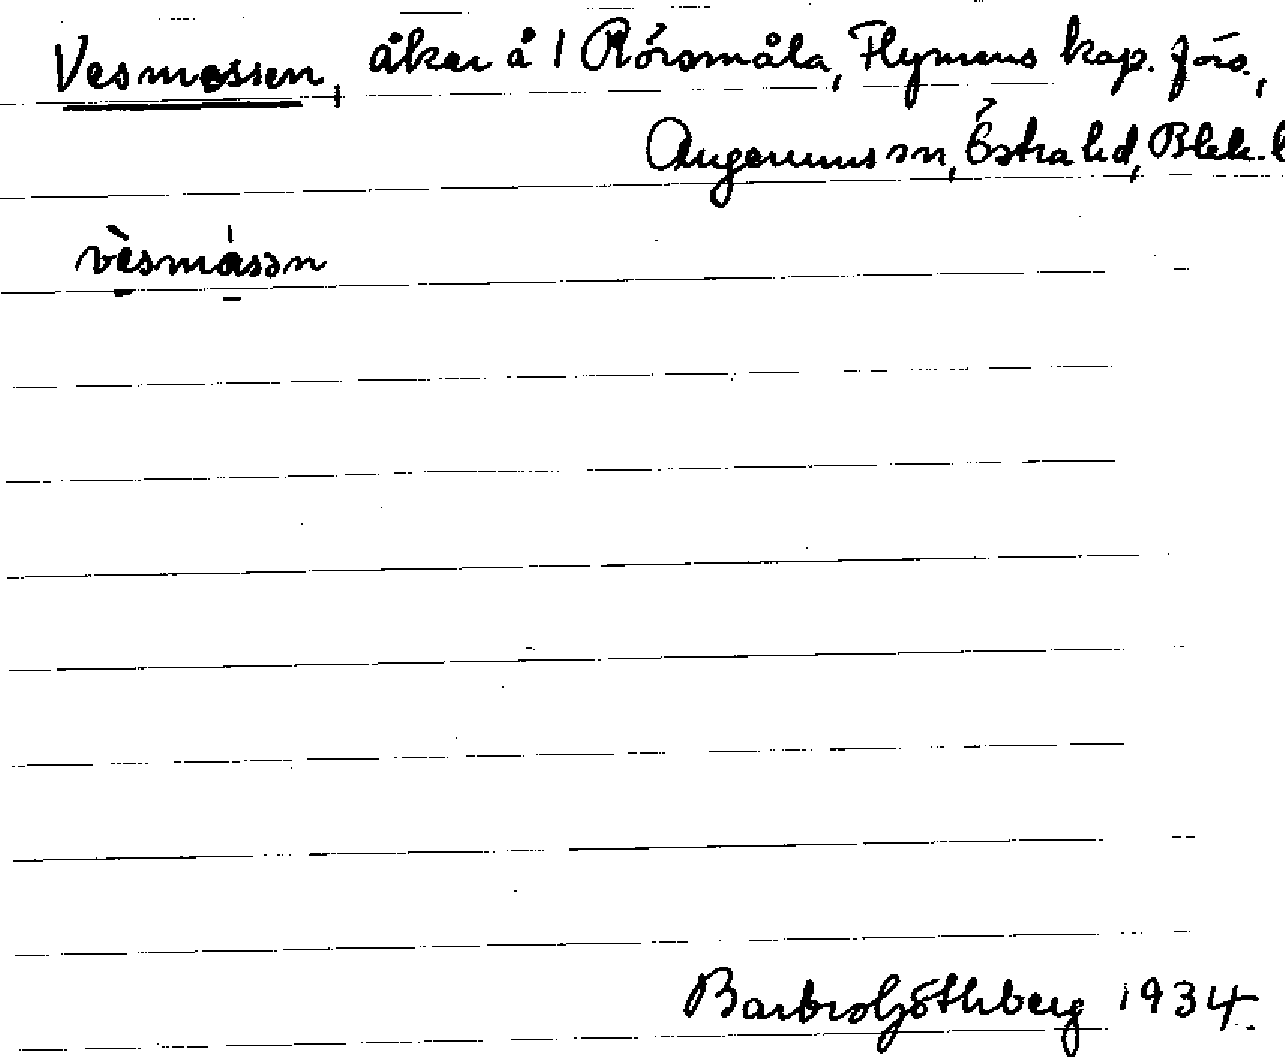 Vesmossen, åker å 1 Rörsmåla, Flymens kap. förs.,
Augerums sn, Östra hd, Blek. l
vèsmåsən
Barbro Göthberg 1934.